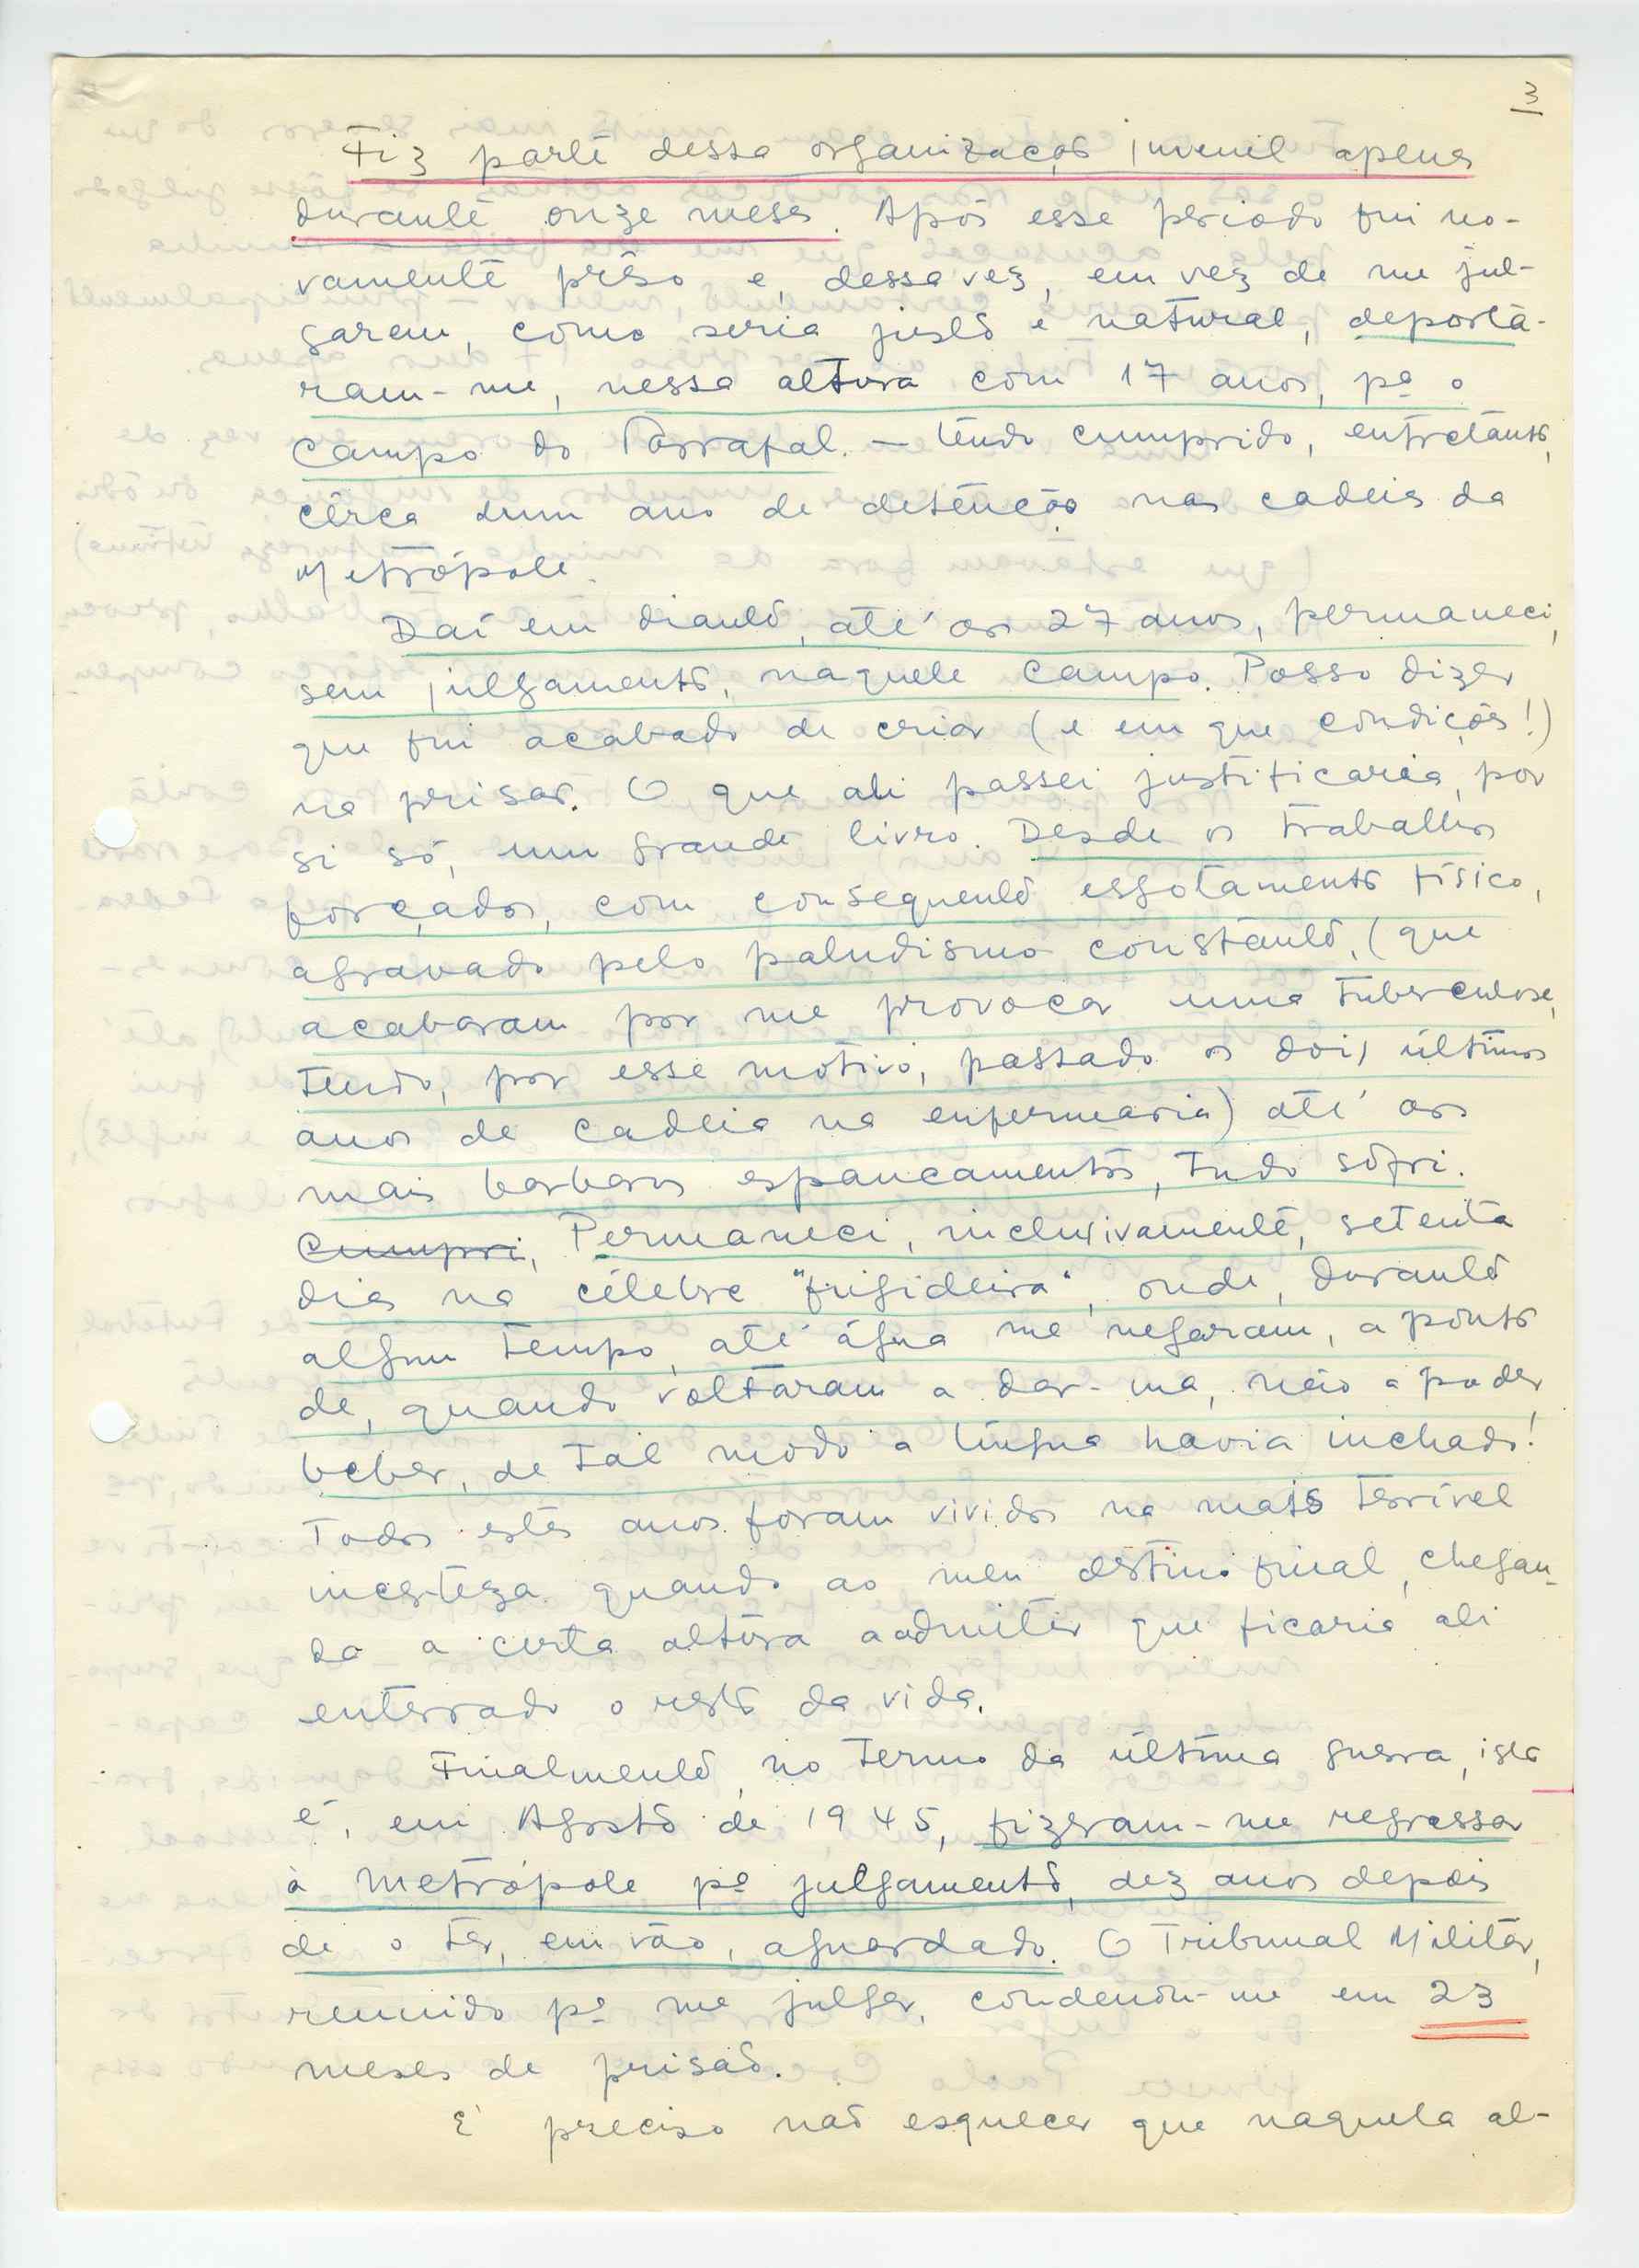 3
Fiz parte dessa organização juvenil apenas
durante onze meses. Após esse período fui no-
vamente prêso e, dessa vez, em vez de me jul-
garem, como seria justo e natural, deportá-
ram-me, nessa altura com 17 anos, pª o
Campo do Tarrafal. — tendo cumprido, entretanto,
cêrca dum ano de detenção nas cadeias da
Metrópole.
Daí em diante, até aos 27 anos, permaneci,
sem julgamento, naquele Campo. Posso dizer
que fui acabado de criar (e em que condições!)
na prisão. O que ali passei justificaria, por
si só, um grande livro. Desde os trabalhos
forçados, com consequente esgotamento físico,
agravado pelo paludismo constante, (que
acabaram por me provocar uma tuberculose,
tendo, por esse motivo, passado os dois últimos
anos de cadeia na enfermaria) até aos
mais barbaros espancamentos, tudo sofri.
Cumpri, Permaneci, inclusivamente, setenta
dias na célebre "frigideira", onde, durante
algum tempo, até água me negaram, a ponto
de, quando voltaram a dar-ma, não a poder
beber, de tal modo a língua havia inchado!
Todos estes anos foram vividos na mais terrível
incerteza quando ao meu destino final, chegan-
do a certa altura a admitir que ficaria ali
enterrado o resto da vida.
Finalmente, no termo da última guerra, isto
é, em Agosto de 1945, fizeram-me regressar
à Metrópole pª julgamento, dez anos depois
de o ter, em vão, aguardado. O Tribunal Militar,
reunido pª me julgar, condenou-me em 23
meses de prisão.
É preciso não esquecer que naquela al-